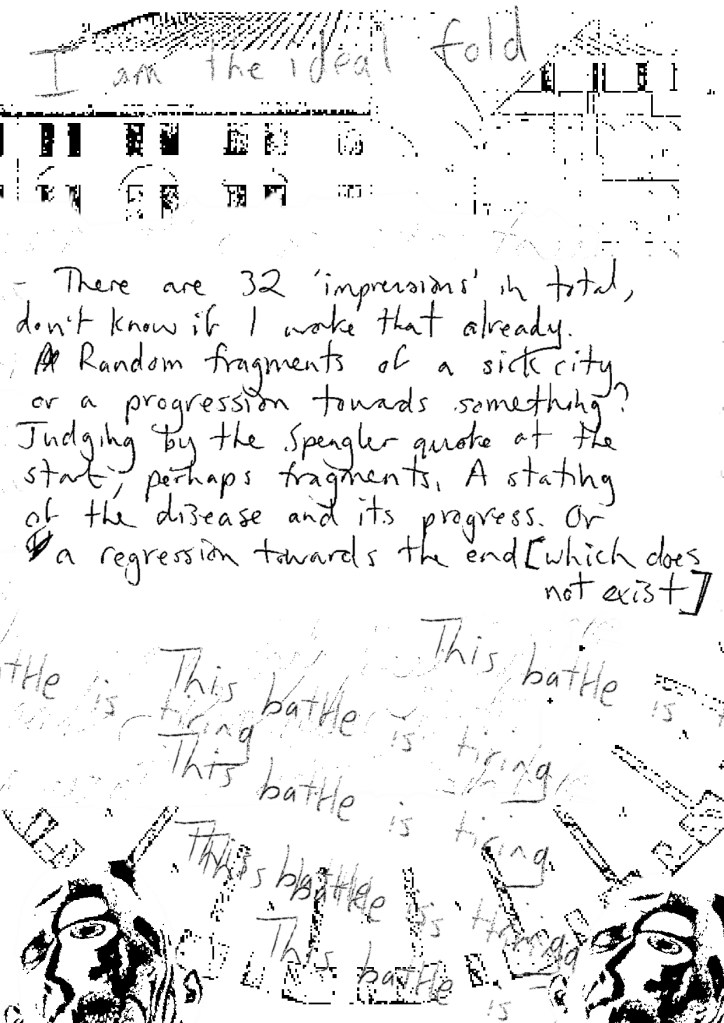 I am the ideal fold
- There are 32 'impressions' in total,
don't know if I wrote that already.
Random fragments of a sick city
or a progression towards something?
Judging by the Spengler quote at the
start, perhaps fragments. A stating
of the disease and its progress. Or
a regression towards the end [which does
not exist]
This battle is
This battle is tiring
battle is tiring
This battle is tiring
This battle is tiring
This battle is